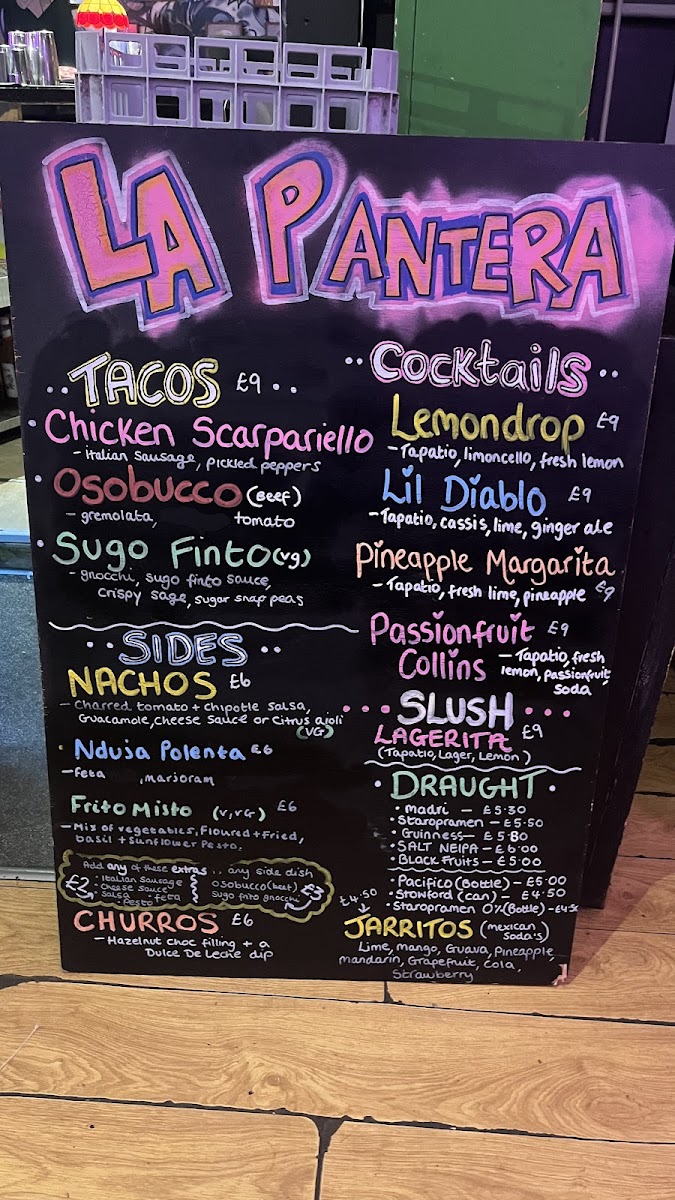 LA PANTERA
..TACOS £9..
• Chicken Scarpariello
- Italian Sausage, pickled peppers
• Osobucco (Beef)
- gremolata, tomato
• Sugo Finto (vg)
- gnocchi, sugo finto sauce,
crispy sage, sugar snap peas
..SIDES..
NACHOS £6
- Charred tomato + chipotle salsa,
Guacamole, cheese sauce or citrus aioli
(VG)
• Nduja Polenta £6
- feta , marjoram
Frito Misto (v, vg) £6
- Mix of vegetables, Floured + Fried,
basil + sunflower Pesto.
Add any of these extras .. any side dish
£2
• Italian Sausage
• cheese sauce
• salsa • feta
• Pesto
osobucco (beef)
sugo finto gnocchi
£3
CHURROS £6
- Hazelnut choc filling + a
Dulce De Leche dip
..Cocktails..
Lemondrop £9
- Tapatio, limoncello, fresh lemon
Lil Diablo £9
- Tapatio, cassis, lime, ginger ale
Pineapple Margarita
- Tapatio, fresh lime, pineapple £9
Passionfruit £9
Collins
- Tapatio, fresh
lemon, passionfruit,
soda
...SLUSH...
LAGERITA £9
(Tapatio, Lager, Lemon)
• DRAUGHT •
• Madri - £5.30
• Staropramen - £5.50
• Guinness - £5.80
• SALT NEIPA - £6.00
• BLACK Fruits - £5.00
• Pacifico (Bottle) - £5.00
• Stowford (can) - £4.50
• Staropramen 0% (Bottle) - £4.50
£4.50
JARRITOS (mexican
Soda's)
Lime, mango, Guava, Pineapple,
mandarin, Grapefruit, cola,
Strawberry